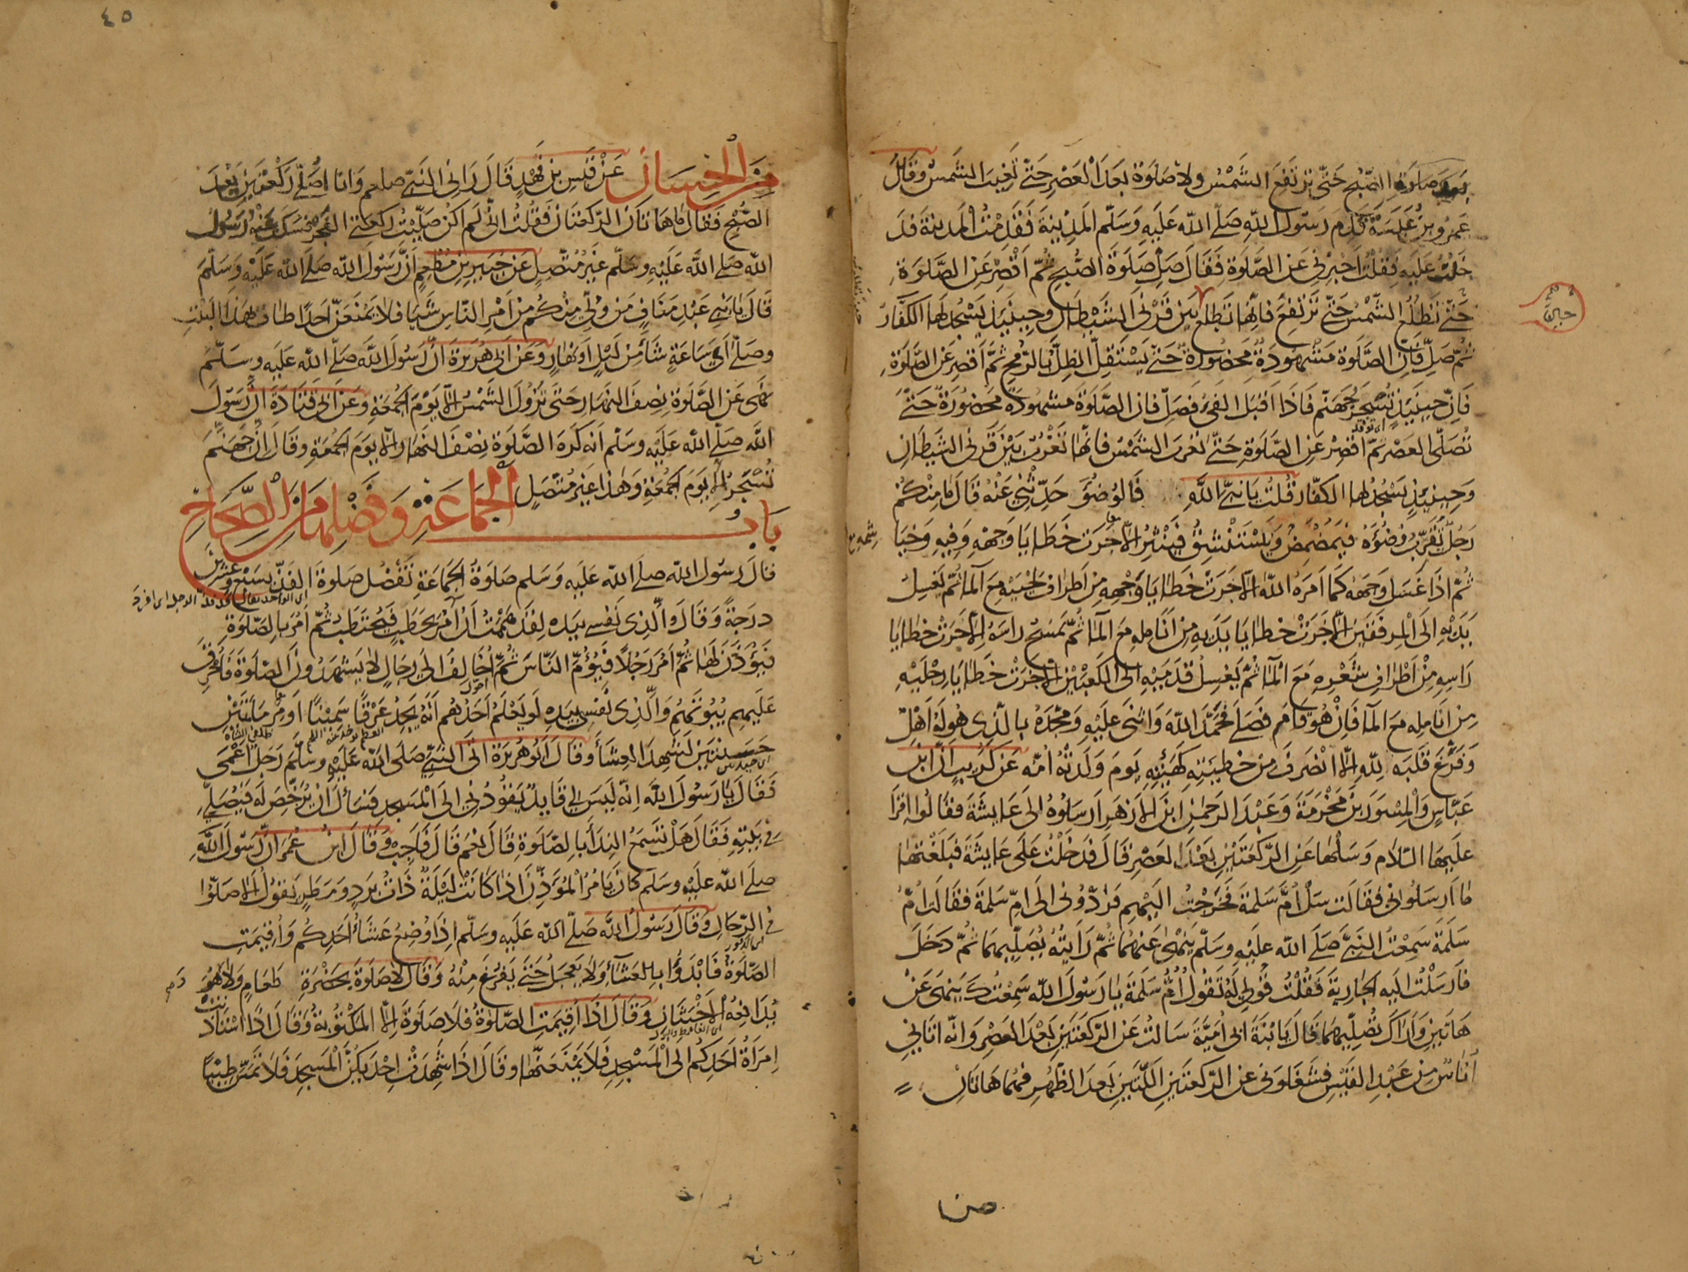 بعد صلوة الصبح حتى ترتفع الشمس ولا صلوة بعد العصر حتى تغيب الشمس وقال
عمرو بن عبسة قدم رسول الله صلى الله عليه وسلم المدينة فقدمت المدينة فد
خلت عليه فقلت اخبرني عن الصلوة فقال صل صلوة الصبح ثم اقصر عن الصلوة
حتى تطلع الشمس حتى ترتفع فانها تطلع بين قرني الشيطان وحينئذ يسجد لها الكفار
ثم صل فان الصلوة مشهودة محضورة حتى يستقل الظل بالرمح ثم اقصر عن الصلوة
فان حينئذ تسجر جهنم فاذا اقبل الفيء فصل فان الصلوة مشهودة محضورة حتى
تصلى العصر ثم اقصر عن الصلوة حتى تغرب الشمس فانها تغرب بين قرني الشيطان
وحينئذ يسجد لها الكفار قلت يا نبي الله فالوضوء حدثني عنه قال ما منكم
رجل يقرب وضوءه فيمضمض ويستنشق فيستنثر الا خرت خطايا وجهه وفيه وخيا
شيمه
ثم اذا غسل وجهه كما امره الله الا خرت خطايا وجهه من اطراف لحيته مع الماء ثم يغسل
يديه الى المرفقين الا خرت خطايا يديه من انامله مع الماء ثم يمسح راسه الا خرت خطايا
راسه من اطراف شعره مع الماء ثم يغسل قدميه الى الكعبين الا خرت خطايا رجليه
من انامله مع الماء فان هو قام فصلى فحمد الله واثنى عليه ومجده بالذي هو له اهل
وفرغ قلبه لله الا انصرف من خطيئته كهيئته يوم ولدته امه عن كريب ان ابن
عباس والمسور بن مخرمة وعبد الرحمن ابن الازهر ارسلوه الى عايشة فقالوا اقرا
عليها السلام وسلها عن الركعتين بعد العصر قال فدخلت على عايشة فبلغتها
ما ارسلوني فقالت سل ام سلمة فخرجت اليهم فردوني الى ام سلمة فقالت ام
سلمة سمعت النبي صلى الله عليه وسلم ينهى عنهما ثم رايته يصليهما ثم دخل
فارسلت اليه الجارية فقلت قولي له تقول ام سلمة يا رسول الله سمعتك ينهى عن
هاتين واراك تصليهما قال يا ابنة ابي امية سالت عن الركعتين بعد العصر وانه اتاني
اناس من عبد القيس فشغلوني عن الركعتين اللتين بعد الظهر فهما هاتان
٤٥
من الحسان عن قيس بن قهد قال راني النبي صلعم وانا اصلي ركعتين بعد
الصبح فقال ما هاتان الركعتان فقلت اني لم اكن صليت ركعتي الفجر فسكت عنه رسول
الله صلى الله عليه وسلم غير متصل عن جبير بن مطعم ان رسول الله صلى الله عليه وسلم
قال يا بني عبد مناف من ولي منكم من امر الناس شيئا فلا يمنعن احدا طاف بهذا البيت
وصلى اي ساعة شاء من ليل او نهار وعن ابي هريرة ان رسول الله صلى الله عليه وسلم
نهى عن الصلوة نصف النهار حتى تزول الشمس الا يوم الجمعة وعن ابي قتادة ان رسول
الله صلى الله عليه وسلم انه كره الصلوة نصف النهار الا يوم الجمعة وقال ان جهنم
تسجر الا يوم الجمعة وهذا غير متصل
باب الجماعة وفضلها من الصحاح
قال رسول الله صلى الله عليه وسلم صلوة الجماعة تفضل صلوة الفذ بسبع وعشرين
درجة وقال والذي نفسي بيده لقد هممت ان آمر بحطب فيحتطب ثم آمر بالصلوة
فيؤذن لها ثم آمر رجلا فيؤم الناس ثم اخالف الى رجال لا يشهدون الصلوة فاحرق
عليهم بيوتهم والذي نفسي بيده لو يعلم احدهم انه يجد عرقا سمينا او مرماتين
حسنتين لشهد العشاء وقال ابو هريرة اتى النبي صلى الله عليه وسلم رجل اعمى
فقال يا رسول الله انه ليس لي قايد يقودني الى المسجد فسئل ان يرخص له فيصلي
في بيته فقال هل تسمع النداء بالصلوة قال نعم قال فاجب وقال ابن عمر ان رسول الله
صلى الله عليه وسلم كان يامر المؤذن اذا كانت ليلة ذات برد ومطر يقول الا صلوا
في الرحال وقال رسول الله صلى الله عليه وسلم اذا وضع عشاء احدكم واقيمت
الصلوة فابدؤا بالعشاء ولا يعجل حتى يفرغ منه وقال لا صلوة بحضرة طعام ولا هو
يدافعه الاخبثان وقال اذا اقيمت الصلوة فلا صلوة الا المكتوبة وقال اذا استاذنت
امراة احدكم الى المسجد فلا يمنعنها وقال اذا شهدت احديكن المسجد فلا تمس طيبا